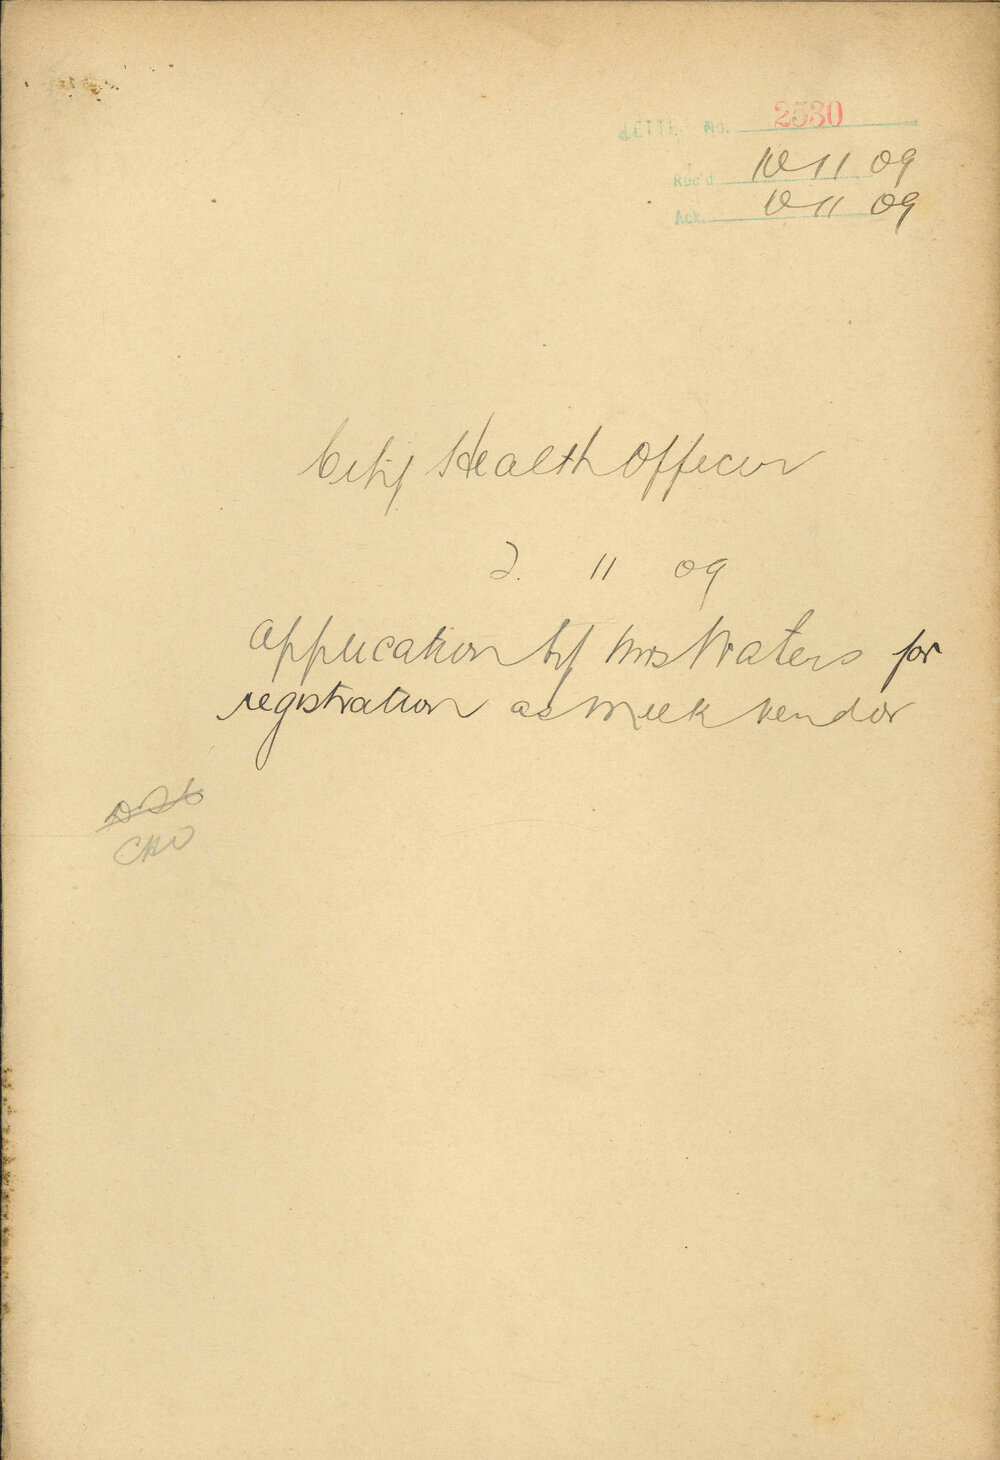 LETTER No. 2530
Rec'd 10 11 09
Ack. 10 11 09
City Health Officer
2. 11 09
Application by Mrs Waters for
registration as milk vendor
CHO